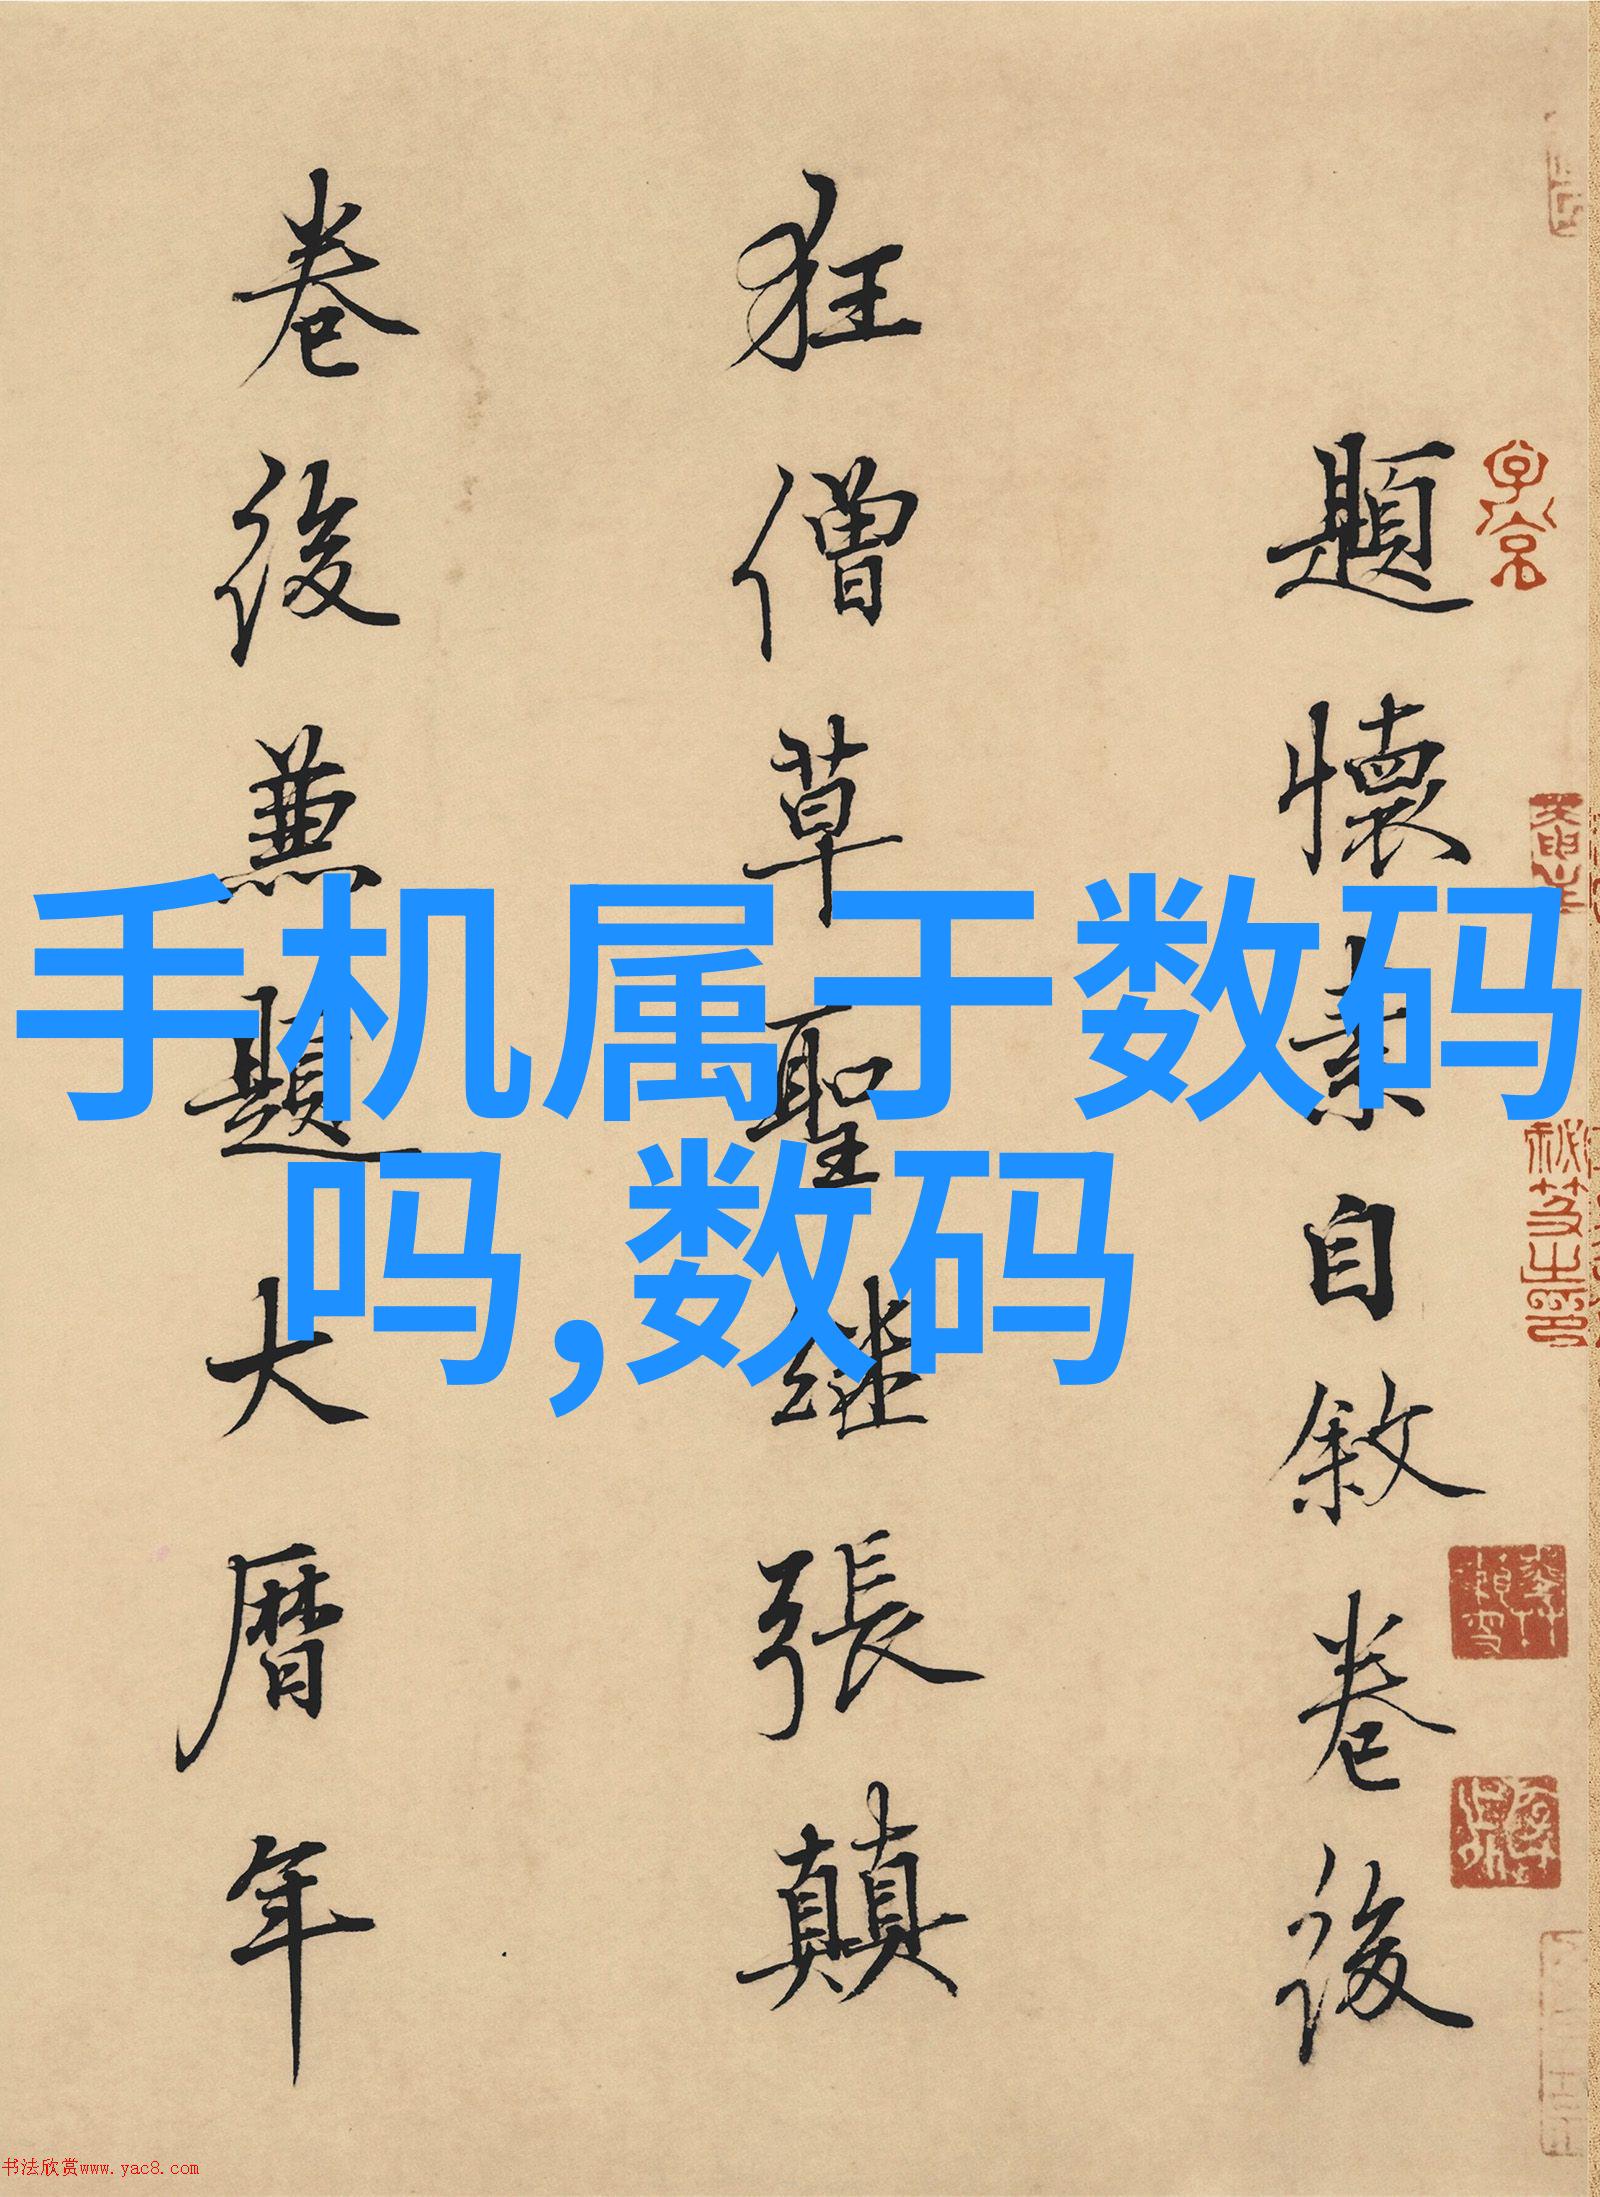 手机属于数码
吗,数码
題懷素自敘卷後
狂僧草聖继張顛
卷後兼題大曆年
书法欣赏www.yac8.com